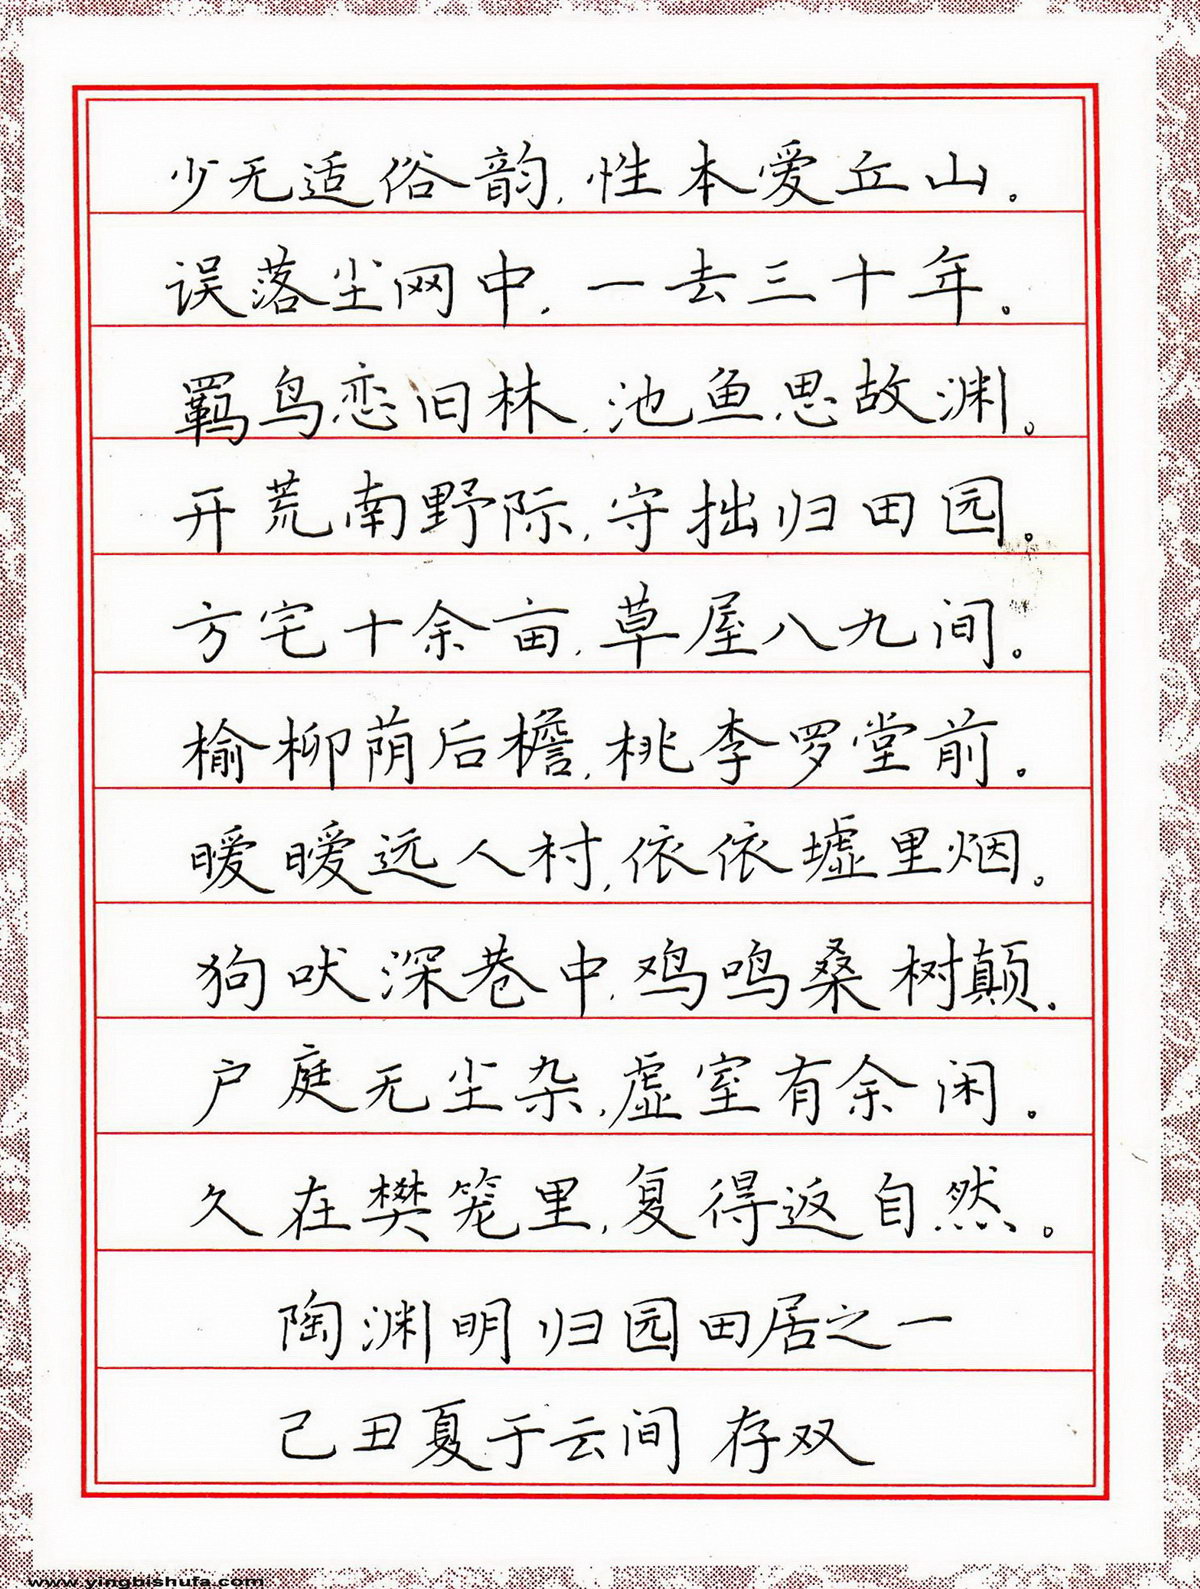 少无适俗韵,性本爱丘山。
误落尘网中,一去三十年。
羁鸟恋旧林,池鱼思故渊。
开荒南野际,守拙归田园。
方宅十余亩,草屋八九间。
榆柳荫后檐,桃李罗堂前。
暧暧远人村,依依墟里烟。
狗吠深巷中,鸡鸣桑树颠.
户庭无尘杂,虚室有余闲。
久在樊笼里,复得返自然。
陶渊明归园田居之一
己丑夏于云间 存双
www.yingbishufa.com